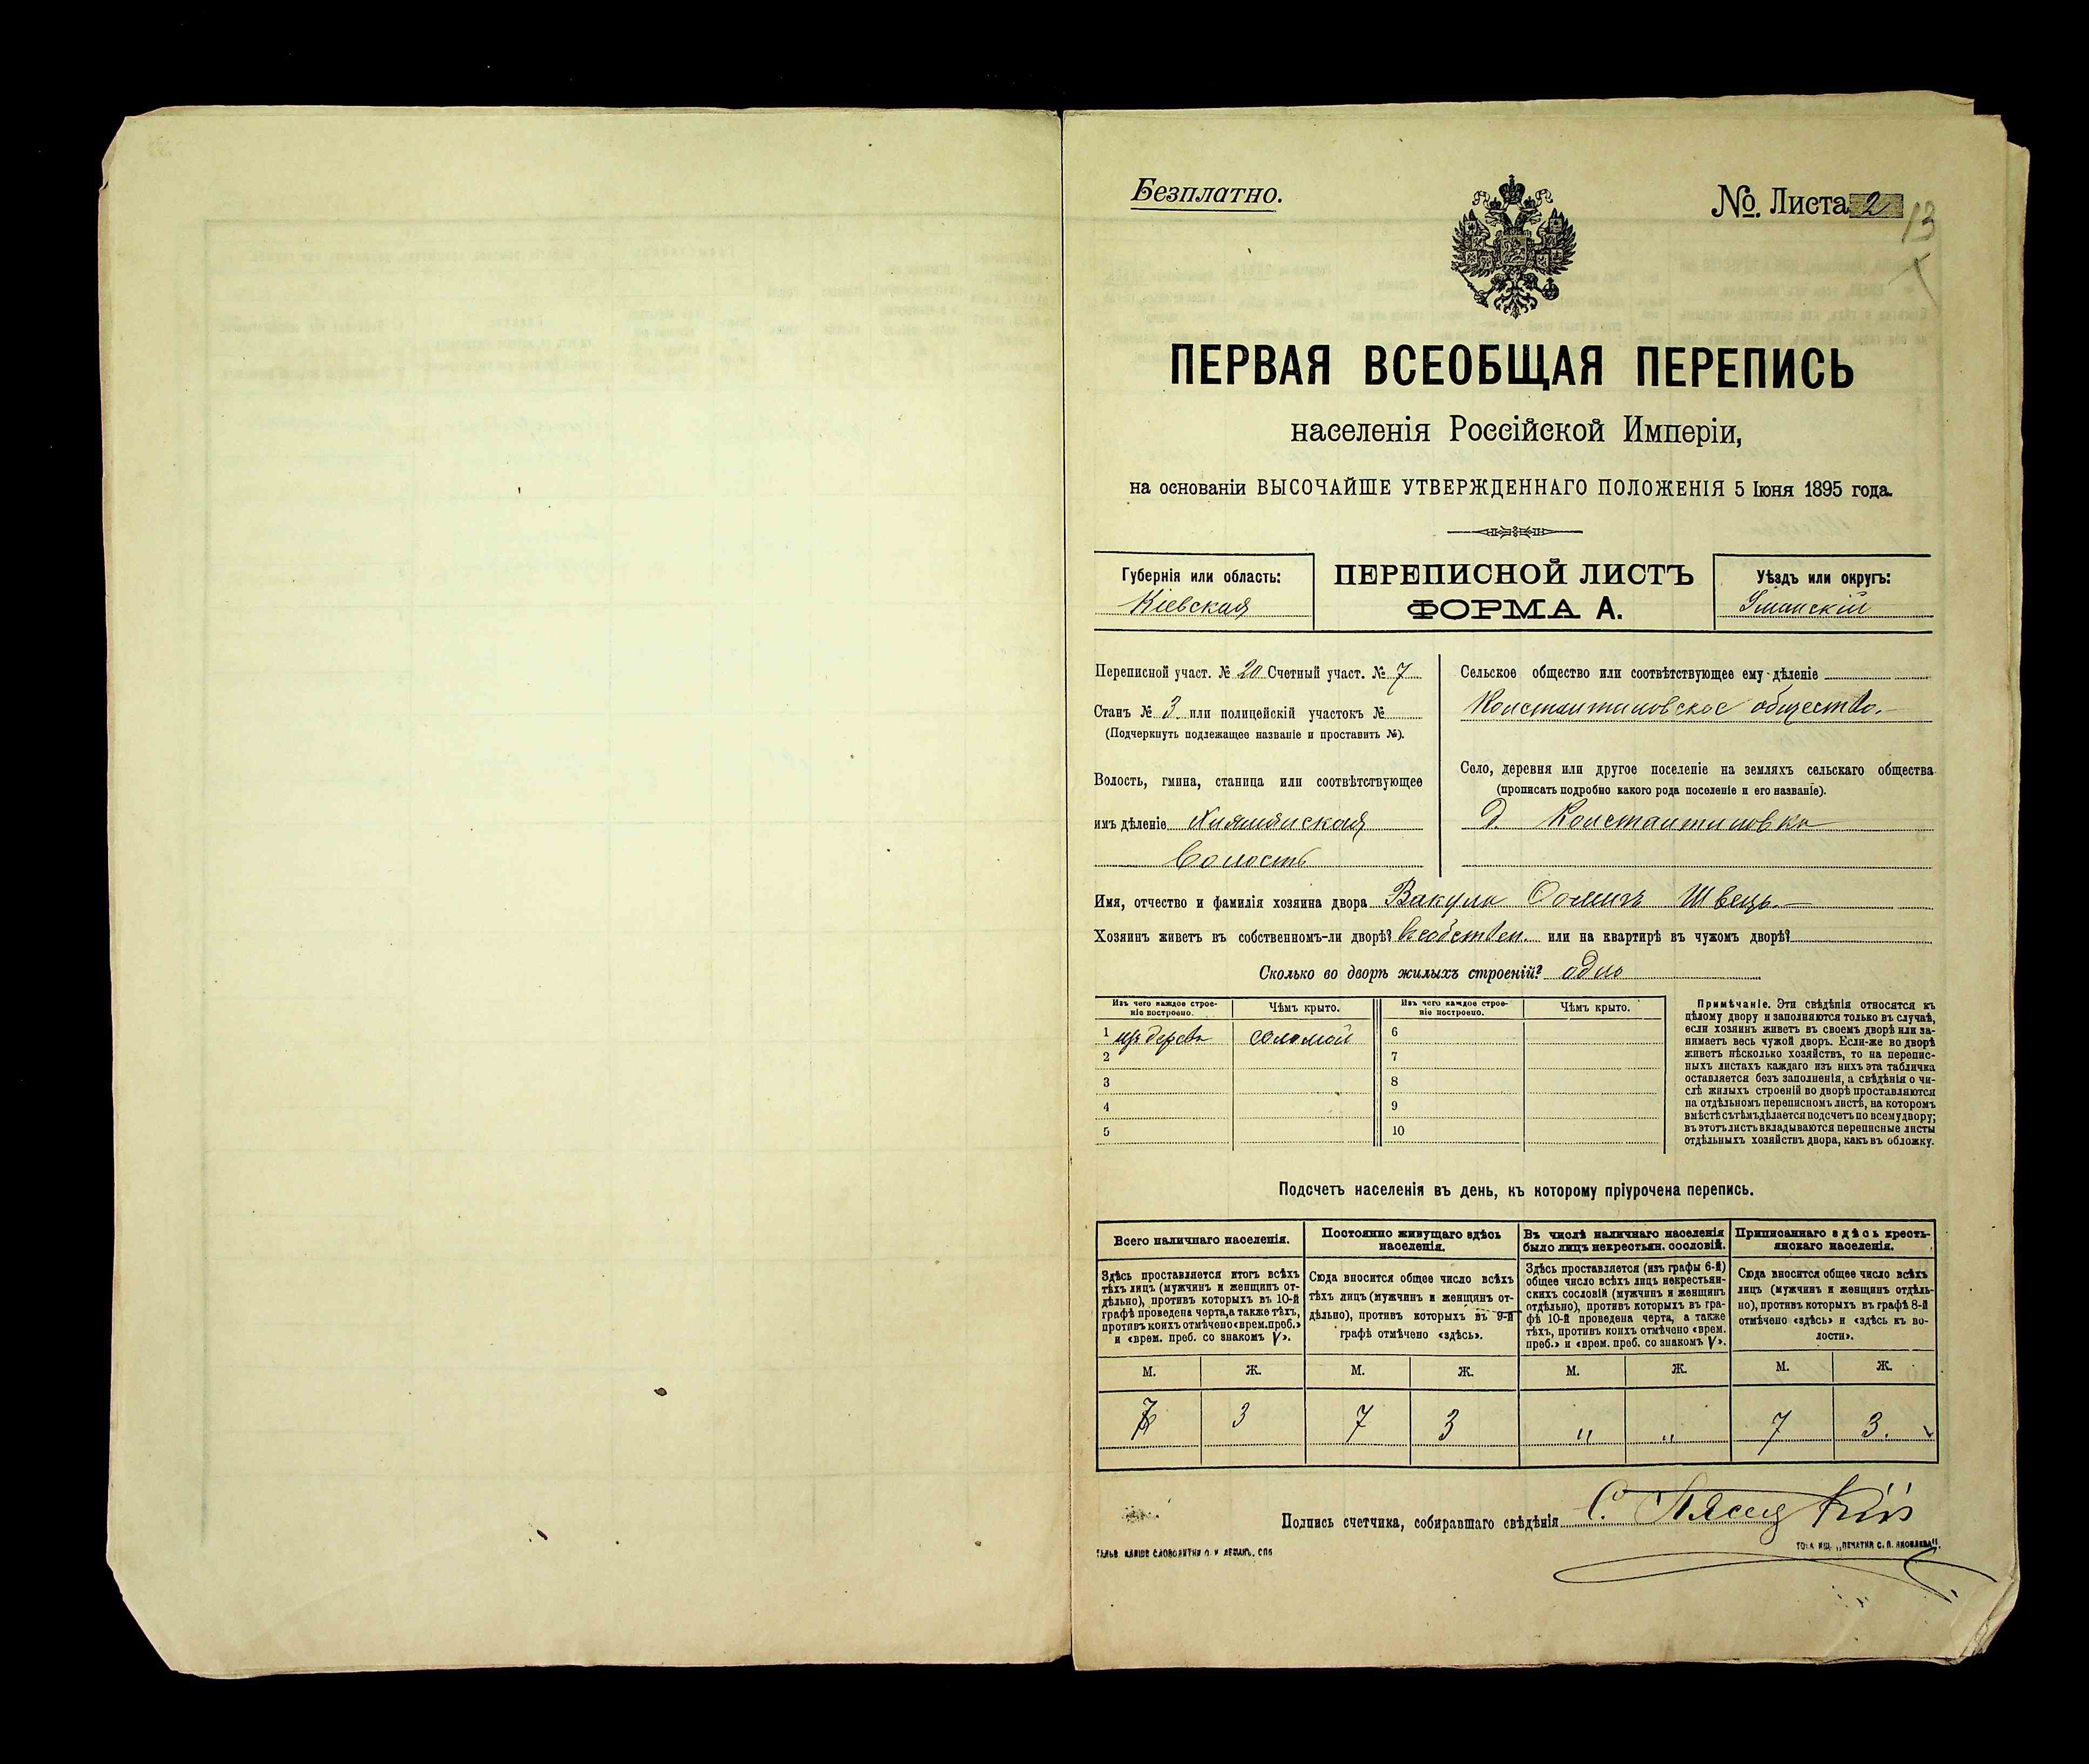 Безплатно.
№. Листа 2
13
ПЕРВАЯ ВСЕОБЩАЯ ПЕРЕПИСЬ
населенія Россійской Имперіи,
на основаніи ВЫСОЧАЙШЕ УТВЕРЖДЕННАГО ПОЛОЖЕНІЯ 5 Іюня 1895 года.
Губернія или область:
Кіевская
ПЕРЕПИСНОЙ ЛИСТЪ
ФОРМА А.
Уѣздъ или округъ:
Уманскій
Переписной участ. № 20 Счетный участ. № 7
Станъ № 3 или полицейскій участокъ №
(Подчеркнуть подлежащее названіе и проставить №).
Волость, гмина, станица или соотвѣтствующее
имъ дѣленіе
Волость
Сельское общество или соотвѣтствующее ему дѣленіе
Константиновское общество.
Село, деревня или другое поселеніе на земляхъ сельскаго общества
(прописать подробно какого рода поселеніе и его названіе).
Д. Константиновка
Имя, отчество и фамилія хозяина двора Вакула Швецъ
Хозяинъ живетъ въ собственномъ-ли дворѣ? въ собствен. или на квартирѣ въ чужомъ дворѣ?
Сколько во дворѣ жилыхъ строеній? одно
Изъ чего каждое строе-
ніе построено.
Чѣмъ крыто.
Изъ чего каждое строе-
ніе построено.
Чѣмъ крыто.
1 изъ дерева соломой 6
2 7
3 8
4 9
5 10
Примѣчаніе. Эти свѣдѣнія относятся къ
цѣлому двору и заполняются только въ случаѣ,
если хозяинъ живетъ въ своемъ дворѣ или за-
нимаетъ весь чужой дворъ. Если-же во дворѣ
живетъ нѣсколько хозяйствъ, то на перепис-
ныхъ листахъ каждаго изъ нихъ эта табличка
оставляется безъ заполненія, а свѣдѣнія о чи-
слѣ жилыхъ строеній во дворѣ проставляются
на отдѣльномъ переписномъ листѣ, на которомъ
вмѣстѣ съ тѣмъ дѣлается подсчетъ по всему двору;
въ этотъ листъ вкладываются переписные листы
отдѣльныхъ хозяйствъ двора, какъ въ обложку.
Подсчетъ населенія въ день, къ которому пріурочена перепись.
Всего наличнаго населенія.
Здѣсь проставляется итогъ всѣхъ
тѣхъ лицъ (мужчинъ и женщинъ от-
дѣльно), противъ которыхъ въ 10-й
графѣ проведена черта, а также тѣхъ,
противъ коихъ отмѣчено «врем. преб.»
и «врем. преб. со знакомъ V».
Постоянно живущаго здѣсь
населенія.
Сюда вносится общее число всѣхъ
тѣхъ лицъ (мужчинъ и женщинъ от-
дѣльно), противъ которыхъ въ 9-й
графѣ отмѣчено «здѣсь».
Въ числѣ наличнаго населенія
было лицъ некрестьян. сословій.
Здѣсь проставляется (изъ графы 6-й)
общее число всѣхъ лицъ некрестьян-
скихъ сословій (мужчинъ и женщинъ
отдѣльно), противъ которыхъ въ гра-
фѣ 10-й проведена черта, а также
тѣхъ, противъ коихъ отмѣчено «врем.
преб.» и «врем. преб. со знакомъ V».
Приписаннаго здѣсь кресть-
янскаго населенія.
Сюда вносится общее число всѣхъ
лицъ (мужчинъ и женщинъ отдѣль-
но), противъ которыхъ въ графѣ 8-й
отмѣчено «здѣсь» и «здѣсь къ во-
лости».
М. Ж. М. Ж. М. Ж. М. Ж.
7 3 7 3 " " 7 3.
Подпись счетчика, собиравшаго свѣдѣнія